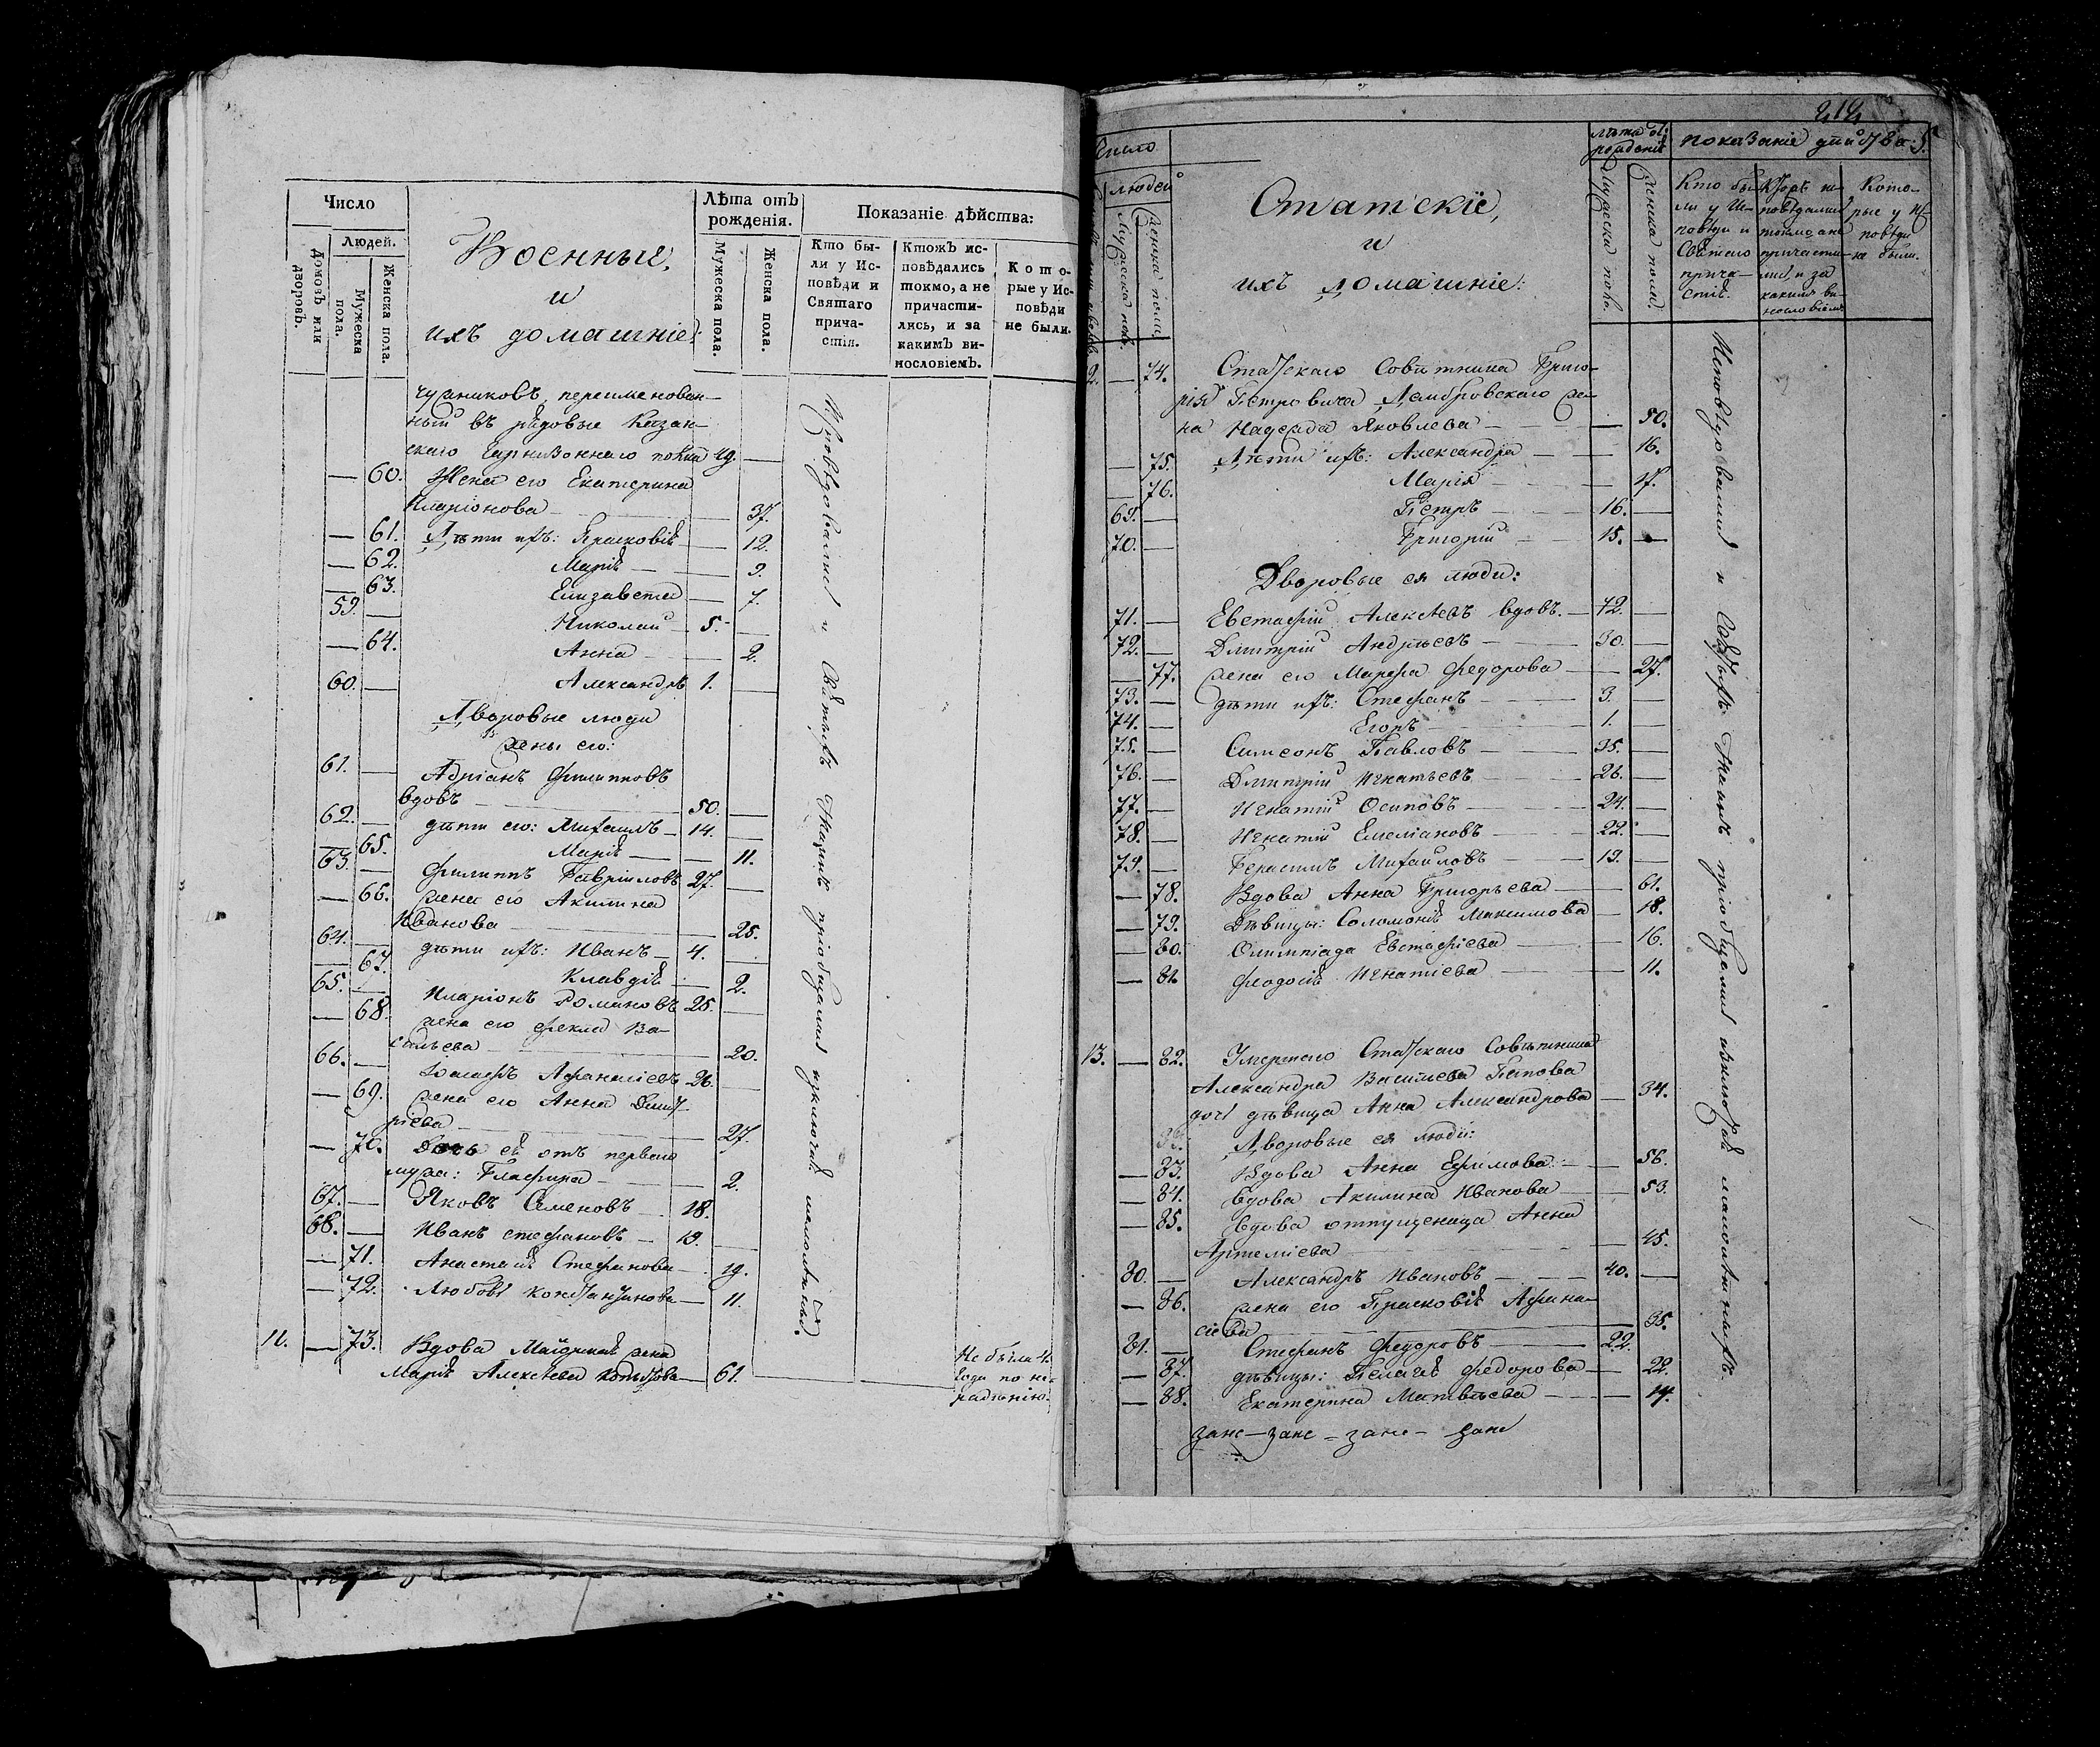 Число
Людей.
Домовъ или дворовъ.
Мужеска пола.
Женска пола.
Военныи,
и
ихъ домашніе:
Лѣта отъ рожденія.
Мужеска пола.
Женска пола.
Показаніе дѣйства:
Кто бы-
ли у Ис-
повѣди и
Святаго
прича-
стія.
Ктожъ ис-
повѣдались
токмо, а не
причасти-
лись, и за
какимъ ви-
нословіемъ.
Кото-
рые у Ис-
повѣди
не были.
переименован-
ный въ рядовые Казан-
скаго Гарнизоннаго полка 49. —
— 60. Жена его Екатерина
Иларіонова — 37.
— 61. Дѣти ихъ: Прасковія — 12.
— 62. Марія — 9.
— 63. Елизавета — 7.
59. — Николай — 5. —
— 64. Анна — 2.
60. — Александръ 1. —
Дворовые люди
жены его:
61. — Адріанъ Филипповъ
вдовъ — 50. —
62. — дѣти его: Михаилъ — 14. —
— 65. Марія — 11.
63. — Филиппъ Гавріиловъ 27. —
— 66. жена его Акилина
Иванова — 25.
64. — дѣти ихъ: Иванъ — 4. —
— 67. Клавдія — 2.
65. — Иларіонъ Романовъ 25. —
— 68. жена его Фекла Ва-
сильева — 20.
66. — Афанасіевъ 26. —
— 69. жена его Анна Дмит-
ріева — 27.
— 70. Дочь ея отъ перваго
мужа: Глафира — 2.
67. — Яковъ Семеновъ — 18.
68. — Иванъ Стефановъ — 19. —
— 71. Анастасія Стефанова — 19.
— 72. Любовь Константинова — 11.
— 73. Вдова Маіорская жена
Марія Алексѣева — 61.
Не была 4.
года по не-
радѣнію.
Исповѣдовались и Святыхъ Таинъ пріобщались изключая малолѣтныхъ.
212
Число
людей
Мужеска пола
Женска пола
Статскіе,
и
ихъ домашніе:
лѣта от
рожденія
Мужеска пола.
Женска пола.
показаніе
Кто бы-
ли у Ис-
повѣди и
Святаго
прича-
стія.
Ктожъ ис-
повѣдались
токмо, а не
причасти-
лись, и за
какимъ ви-
нословіемъ
Кото-
рые у Ис-
повѣди
не были.
— 74. Статскаго Совѣтника Григо-
рія Петровича Домбровскаго же-
на Надежда Яковлева — 50.
— 75. Дѣти ихъ: Александра — 16.
— 76. Марія — 17.
69. — Петръ — 16. —
70. — Григорій — 15. —
Дворовые ея люди:
71. — Евстафій Алексѣевъ вдовъ. — 72. —
72. — Дмитрій Андрѣевъ — 30. —
— 77. жена его Марфа Федорова — 27.
73. — дѣти ихъ: Стефанъ — 3. —
74. — Егоръ — 1. —
75. — Симеонъ Павловъ — 35. —
76. — Дмитрій Игнатьевъ — 26. —
77. — Игнатій Осиповъ — 24. —
78. — Игнатій Емеліановъ — 22. —
79. — Герасимъ Михайловъ — 19. —
— 78. Вдова Анна Григорьева — 61.
— 79. Дѣвицы: Соломонія Максимова — 18.
— 80. Олимпіада Евстафіева — 16.
— 81. Феодосія Игнатіева — 11.
13. — 82. Умершаго Статскаго Совѣтника
Александра Васильева Попова
дочь дѣвица Анна Александрова — 34.
Дворовые ея люди:
— 83. Вдова Анна Ефимова — 56.
— 84. Вдова Акилина Иванова — 53.
— 85. Вдова отпущеница Анна
Артеміева — 45.
80. — Александръ Ивановъ — 40. —
— 86. жена его Прасковія Афана-
сіева — 35.
81. — Стефанъ Федоровъ — 22.
— 87. дѣвицы: Пелагія Федорова — 22.
— 88. Екатерина Матвѣева — 14.
Исповѣдовались и Святыхъ Таинъ пріобщались изключая малолѣтныхъ.